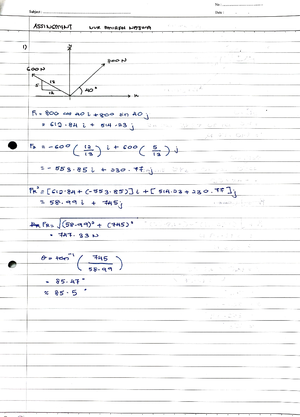 No:
Subject: Date:
ASSIGNMENT
1) y
800 N
600 N
13
5
12
40°
x
F₁ = 800 cos 40 i + 800 sin 40 j
= 612.84 i + 514.23 j
F₂ = -600 (12/13) i + 600 (5/13) j
= -553.85 i + 230.77 j
FR = [612.84 + (-553.85)] i + [514.23 + 230.77] j
= 58.99 i + 745 j
FR = √(58.99)² + (745)²
= 747.33 N
θ = tan⁻¹ (745/58.99)
= 85.47°
= 85.5°